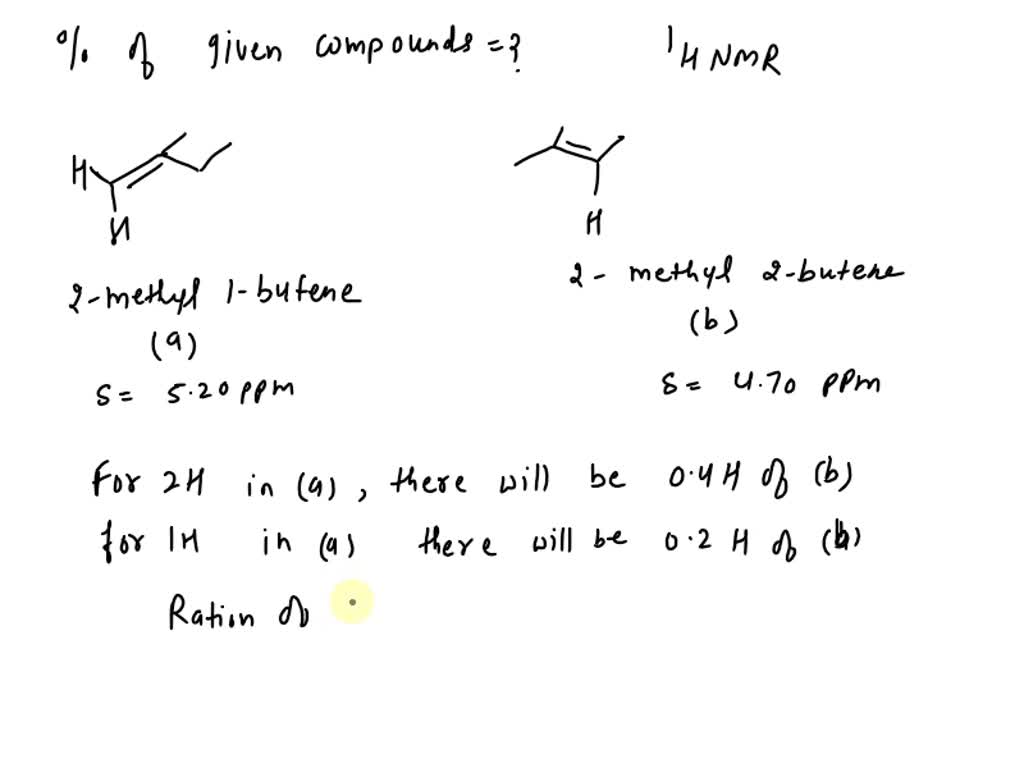 % of given compounds = ? ¹H NMR
H
H
H
2-methyl 1-butene
2- methyl 2-butene
(a)
(b)
δ = 5.20 ppm
δ = 4.70 ppm
For 2H in (a), there will be 0.4H of (b)
for 1H in (a) there will be 0.2 H of (b)
Ration of